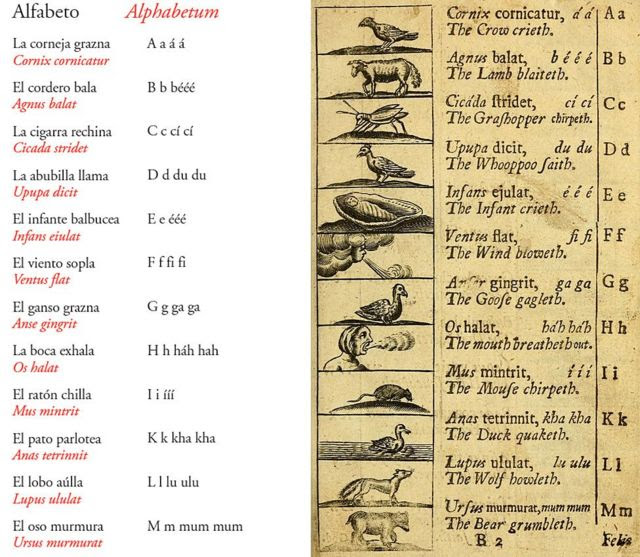 Alfabeto Alphabetum
La corneja grazna A a á á
Cornix cornicatur
El cordero bala B b bééé
Agnus balat
La cigarra rechina C c cí cí
Cicada stridet
La abubilla llama D d du du
Upupa dicit
El infante balbucea E e ééé
Infans eiulat
El viento sopla F f fi fi
Ventus flat
El ganso grazna G g ga ga
Anse gingrit
La boca exhala H h háh hah
Os halat
El ratón chilla I i ííí
Mus mintrit
El pato parlotea K k kha kha
Anas tetrinnit
El lobo aúlla L l lu ulu
Lupus ululat
El oso murmura M m mum mum
Ursus murmurat
Cornix cornicatur, á á A a
The Crow crieth.
Agnus balat, b é é é B b
The Lamb blaiteth.
Cicáda ſtridet, cí cí C c
The Graſhopper chirpeth.
Upupa dicit, du du D d
The Whooppoo ſaith.
Infans ejulat, é é é E e
The Infant crieth.
Ventus flat, fi fi F f
The Wind bloweth.
gingrit, ga ga G g
The Gooſe gagleth.
Os halat, háh háh H h
The mouth breatheth out.
Mus mintrit, í í í I i
The Mouſe chirpeth.
Anas tetrinnit, kha kha K k
The Duck quaketh.
Lupus ululat, lu ulu L l
The Wolf howleth.
Urſus murmurat, mum mum M m
The Bear grumbleth.
B 2